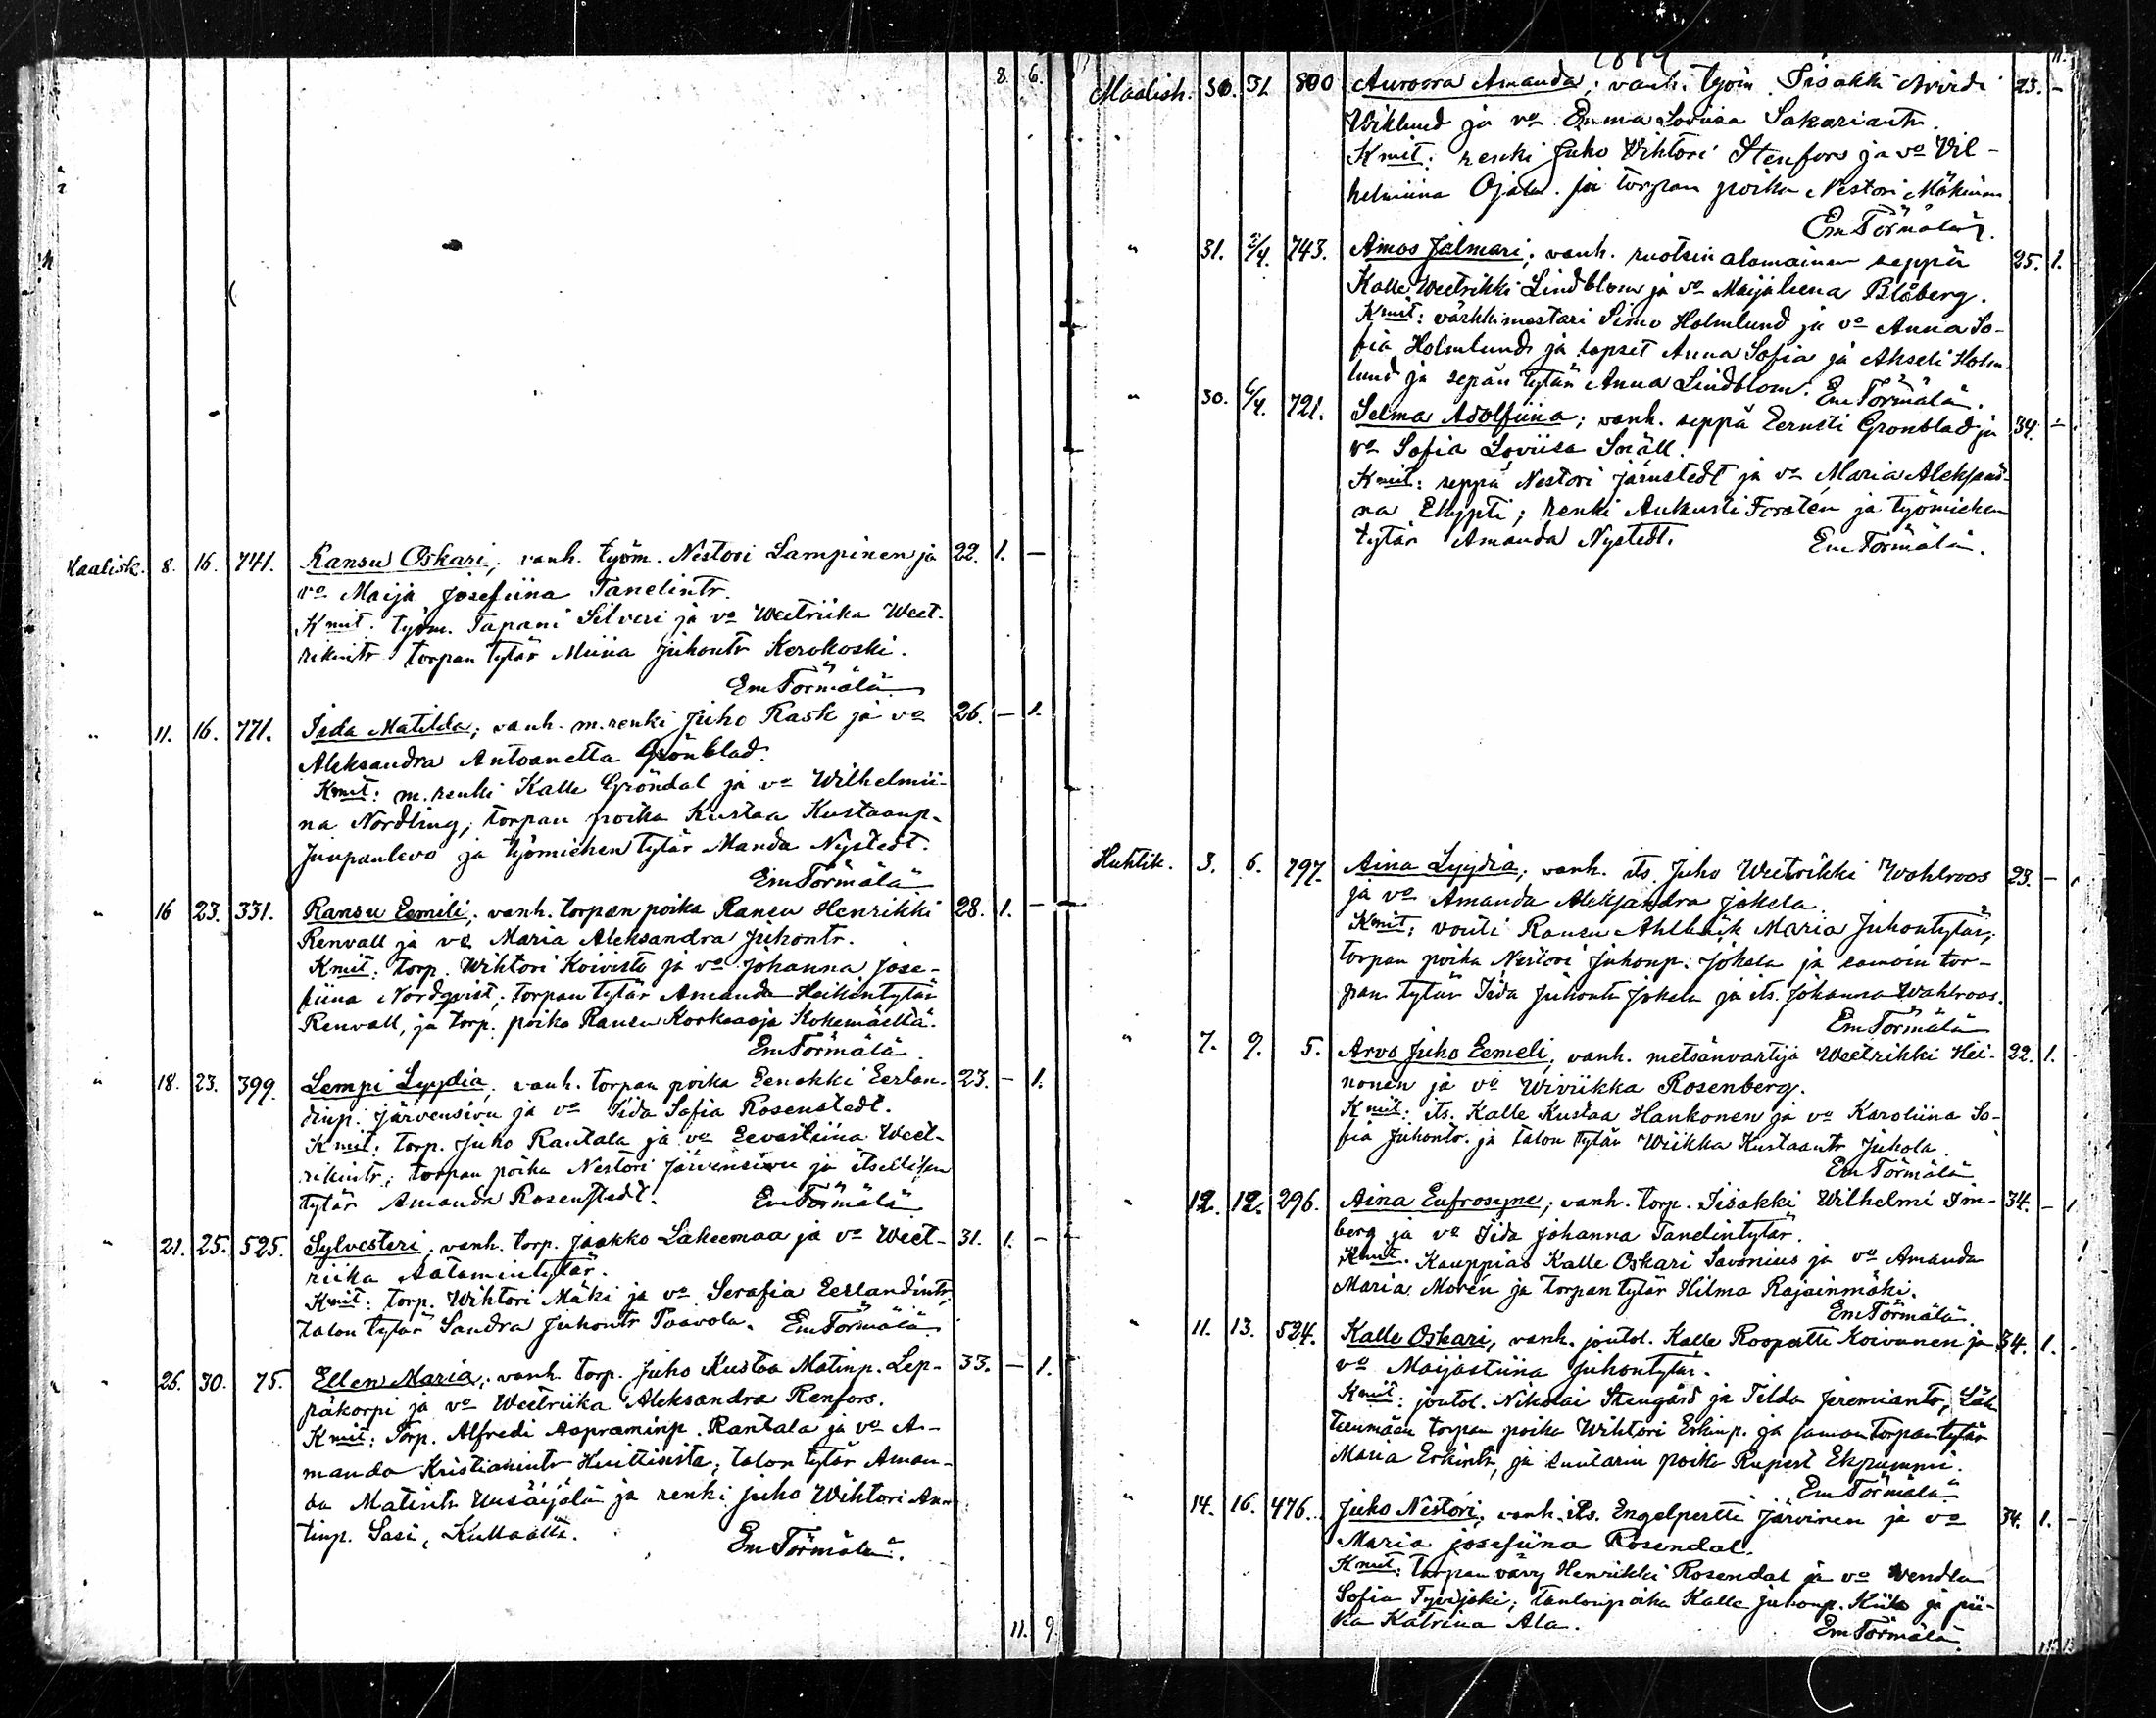 8. 6.
Maalisk. 8. 16. 741. Ransu Oskari; vanh. työm. Nestori Lampinen ja 22. 1. —
vo Maija Josefiina Tanelintr.
Kmit. työm. Tapani Silveri ja vo Weetriika Weet-
rikintr torpan tytär Miina Juhontr Kerokoski.
Em Törmälä
" 11. 16. 771. Iida Matilda; vanh. m. renki Juho Rask ja vo 26. — 1.
Aleksandra Antoanetta Grönblad.
Kmit: m. renki Kalle Gröndal ja vo Wilhelmii-
na Nordling; torpan poika Kustaa Kustaanp.
ja työmiehen tytär Manda Nystedt.
Em Törmälä
" 16 23. 331. Ransu Eemili; vanh. torpan poika Ransu Henrikki 28. 1. —
Renvall ja vo Maria Aleksandra Juhontr.
Kmit: torp. Wihtori Koivisto ja vo Johanna Jose-
fiina Nordqvist; torpan tytär Amanda Heikintytär
Renvall, ja torp. poika Ransu Korkeaoja Kokemäeltä.
Em Törmälä
" 18. 23. 399. Lempi Lyydia; vanh. torpan poika Eenokki Eerlan- 23. — 1.
dinp. Järvensivu ja vo Iida Sofia Rosenstedt.
Kmit: torp. Juho Rantala ja vo Eevastiina Weet-
rikintr; torpan poika Nestori Järvensivu ja itsellisen
tytär Amanda Rosenstedt. Em Törmälä
" 21. 25. 525. Sylvesteri; vanh. torp. Jaakko Lakeemaa ja vo Weet- 31. 1. —
riika Aatamintytär.
Kmit: torp. Wihtori Mäki ja vo Serafia Eerlandintr;
talon tytär Sandra Juhontr Paavola. Em Törmälä
" 26. 30. 75. Ellen Maria; vanh. torp. Juho Kustaa Matinp. Lep- 33. — 1.
päkorpi ja vo Weetriika Aleksandra Renfors.
Kmit: Torp. Alfredi Aapraminp. Rantala ja vo A-
manda Kristianintr Huittisista; talon tytär Aman-
da Matintr Uusäijälä ja renki Juho Wihtori An-
tinp. Sasi, Kullaalta. Em Törmälä.
11. 9.
1884
11.
Maalisk. 30. 31. 800 Auroora Amanda; vanh. työm. Iisakki Arvidi 23. —
Wiklund ja vo Emma Loviisa Sakariantr.
Kmit: renki Juho Wihtori Stenfors ja vo Vil-
helmiina Ojala. ja torpan poika Nestori Mäkinen
Em Törmälä.
" 31. 2/4. 743. Amos Jalmari; vanh. ruotsin alamainen seppä 25. 1.
Kalle Weetrikki Lindblom ja vo Maijaleena Blåberg.
Kmit: värkkimestari Simo Holmlund ja vo Anna So-
fia Holmlund, ja lapset Anna Sofia ja Akseli Holm-
lund ja sepän tytär Anna Lindblom. Em Törmälä.
" 30. 6/4. 721. Selma Adolfiina; vanh. seppä Eernsti Gronblad ja 34. —
vo Sofia Loviisa Snäll.
Kmit: seppä Nestori Järnstedt ja vo Maria Aleksand-
ra Ekypti; renki Aukusti Forstén ja työmiehen
tytär Amanda Nystedt. Em Törmälä.
Huhtik. 3. 6. 797. Aina Lyydia; vanh. its. Juho Weetrikki Wahlroos 23. —
ja vo Amanda Aleksandra Jokela.
Kmit: vouti Ransu Ahlbäck Maria Juhontytär;
torpan poika Nestori Juhonp. Jokela ja samoin tor-
pan tytär Iida Juhontr Jokela ja its. Johanna Wahlroos.
Em Törmälä
" 7. 9. 5. Arvo Juho Eemeli; vanh. metsänvartija Weetrikki Hei- 22. 1.
nonen ja vo Wiviikka Rosenberg.
Kmit: its. Kalle Kustaa Hankonen ja vo Karoliina So-
fia Juhontr. ja talon tytär Wiikka Kustaantr Juhola.
Em Törmälä
" 12. 12. 296. Aina Eufrosyne; vanh. torp. Iisakki Wilhelmi Im- 34. — 1
berg ja vo Iida Johanna Tanelintytär.
Kmit. Kauppias Kalle Oskari Savonius ja vo Amanda
Maria Morén ja torpan tytär Hilma Rajainmäki.
Em Törmälä.
" 11. 13. 524. Kalle Oskari; vanh. joutol. Kalle Roopertti Koivunen ja 34. 1.
vo Maijastiina Juhontytär.
Kmit: joutol. Nikolai Stengård ja Tilda Jeremiantr, Läh-
teenmäen torpan poika Wihtori Erkinp. ja saman torpan tytär
Maria Erkintr, ja suutarin poika Rupert
Em Törmälä
" 14. 16. 476. Juho Nestori; vanh. its. Engelpertti Järvinen ja vo 34. 1. —
Maria Josefiina Rosendal.
Kmit: torpan vävy Henrikki Rosendal ja vo Wendla
Sofia Tyvijoki; talonpoika Kalle Juhonp. Kiila ja pii-
ka Katriina Ala. Em Törmälä.